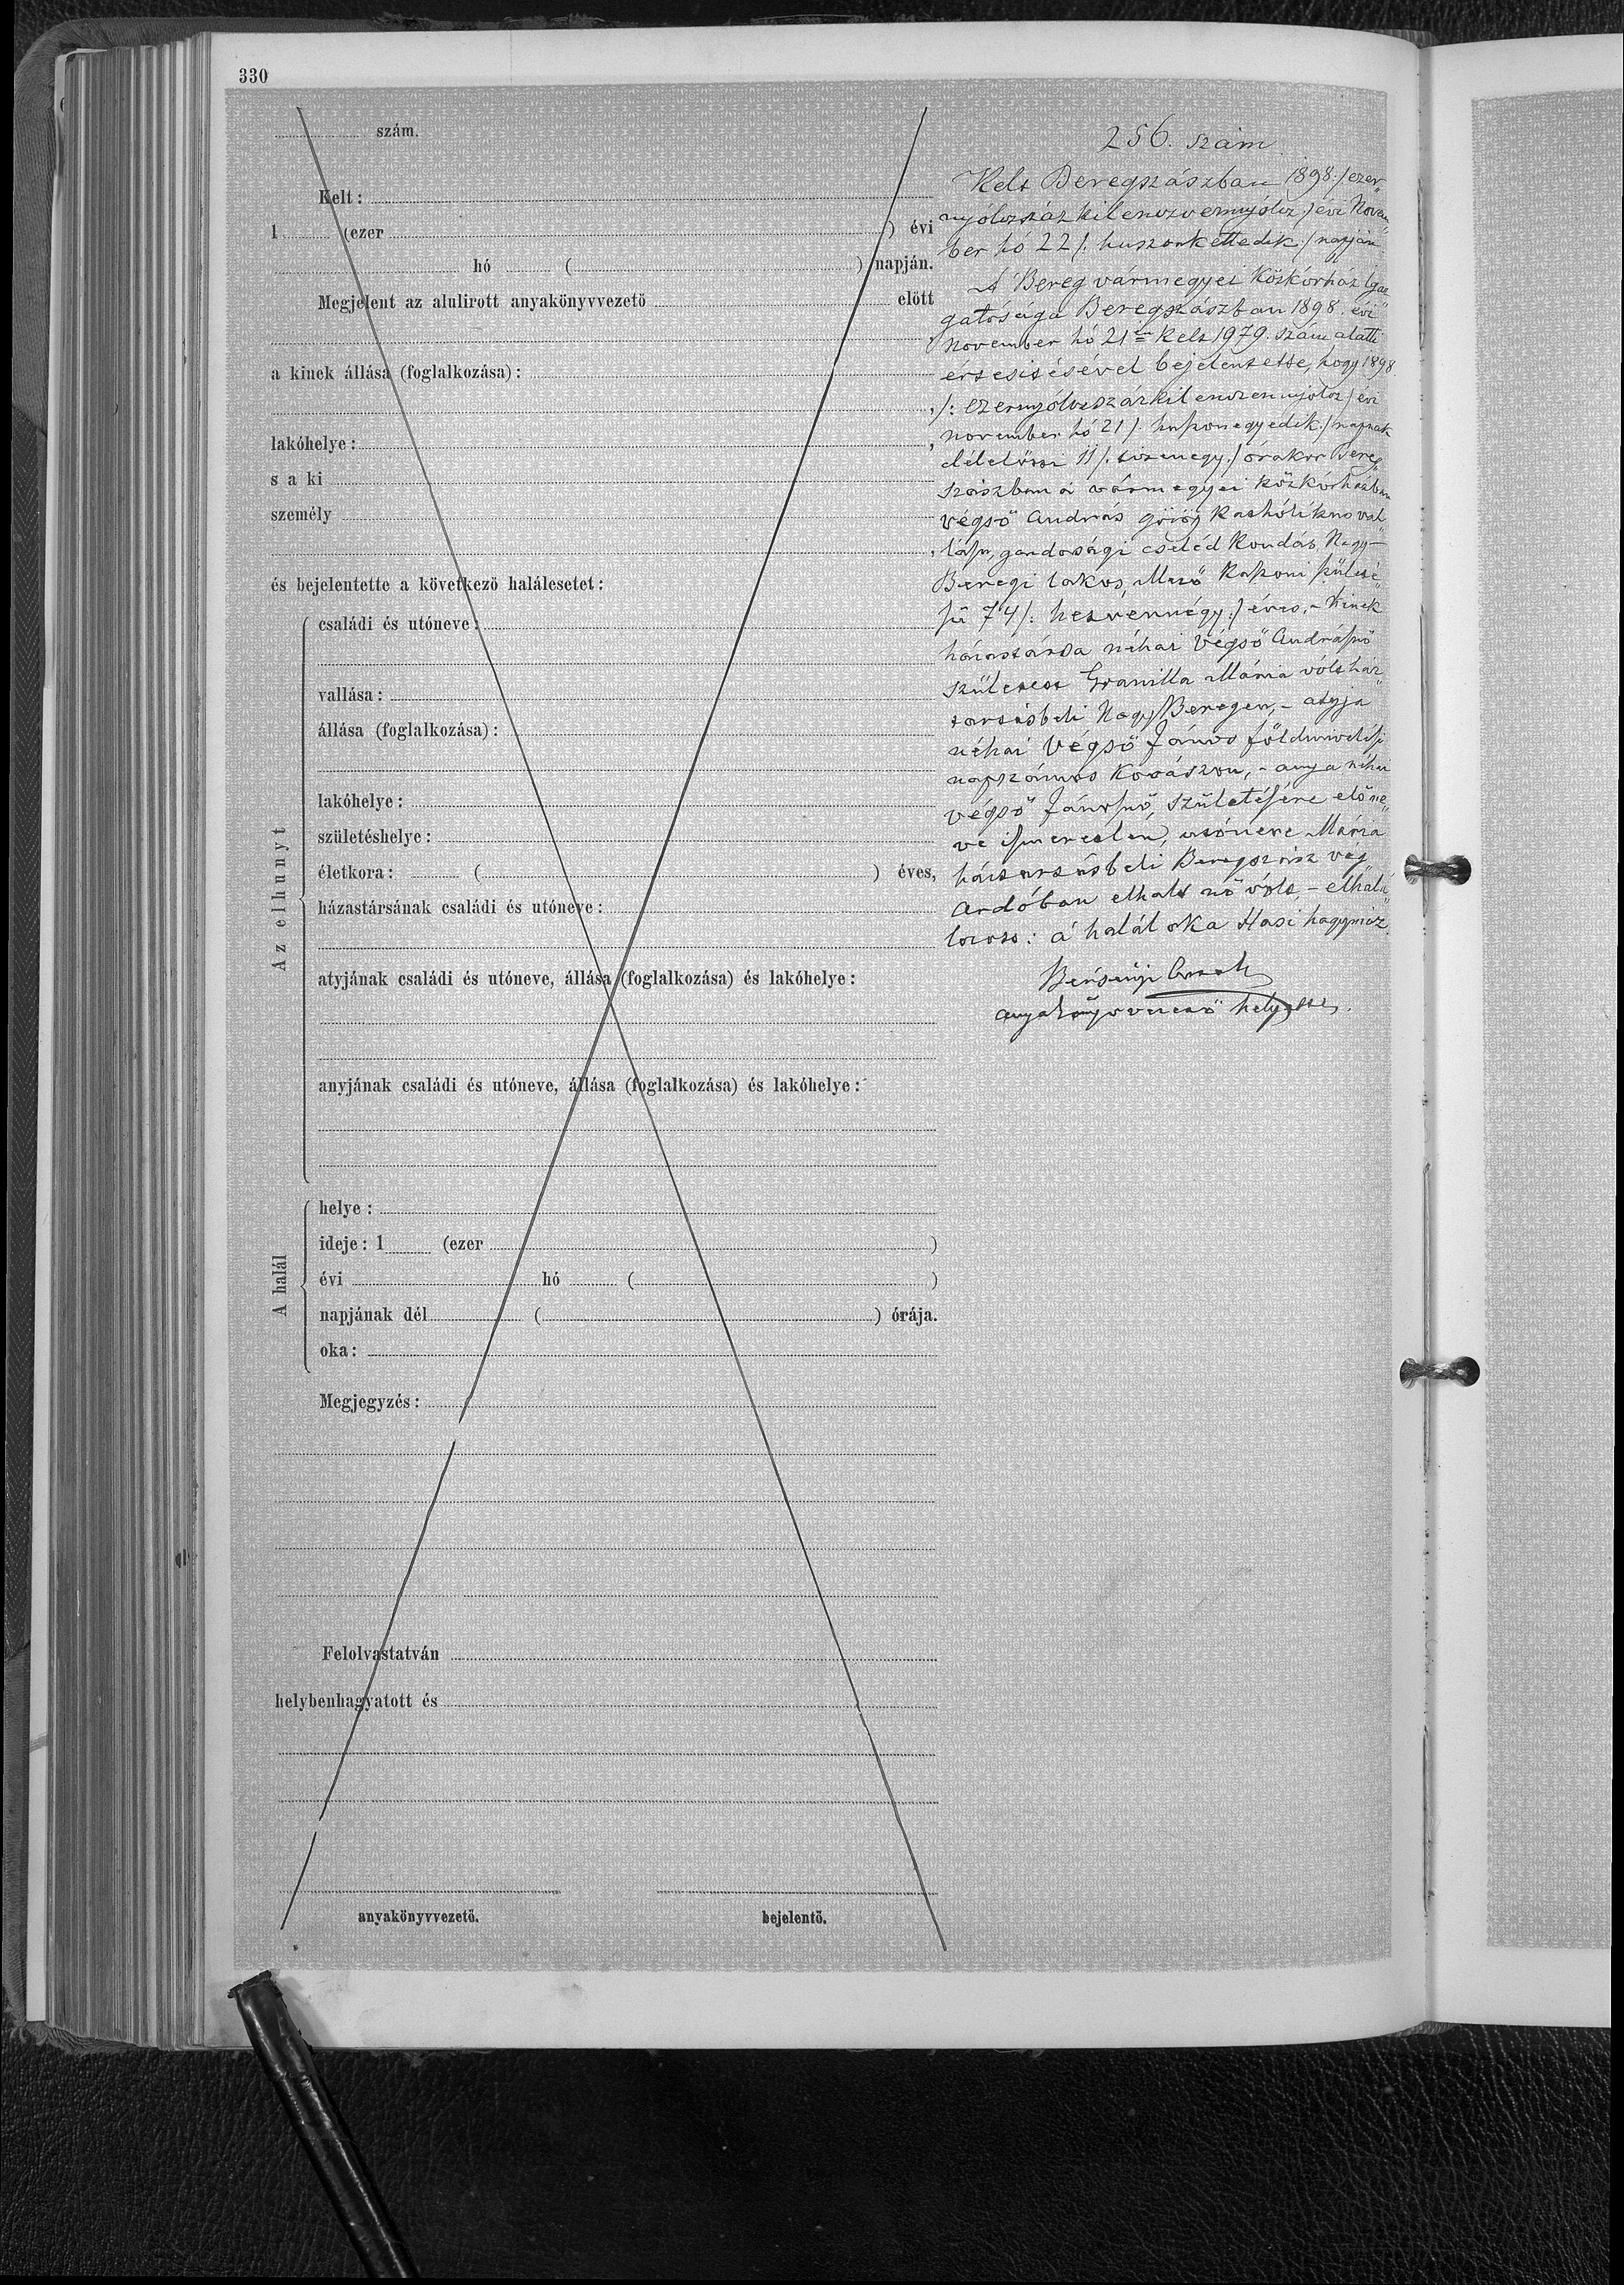 330
szám.
Kelt:
1 (ezer ) évi
hó ( ) napján.
Megjelent az alulirott anyakönyvvezető előtt
a kinek állása (foglalkozása):
lakóhelye:
s a ki
személy
és bejelentette a következő halálesetet:
Az elhunyt
családi és utóneve:
vallása:
állása (foglalkozása):
lakóhelye:
születéshelye:
életkora: ( ) éves,
házastársának családi és utóneve:
atyjának családi és utóneve, állása (foglalkozása) és lakóhelye:
anyjának családi és utóneve, állása (foglalkozása) és lakóhelye:
A halál
helye:
ideje: 1 (ezer )
évi hó ( )
napjának dél ( ) órája.
oka:
Megjegyzés:
Felolvastatván
helybenhagyatott és
anyakönyvvezető.
bejelentő.
256. szám
Kelt Beregszászban 1898. /: ezer„
nyólczszáz kilenczvennyólcz :/ évi Novem„
ber hó 22 /: huszonkettedik :/ napján
A Bereg vármegyei Közkórház Igaz„
gatósága Beregszászban 1898. évi
November hó 21én kelt 1979. szám alatti
értesitésével bejelentette, hogy 1898
/: ezernyólczszáz
november hó 21 /: huszonegyedik :/ napnak
délelőtti 11 /: tizenegy :/ órakor Bereg„
szászban a vármegyei közkórházban
Végső András görög katholikus val„
lásu, gazdasági cseléd Kondás, Nagy-
Beregi lakos, Mező Kaszoni születé„
sü 74 /: hetvennégy :/ éves, - kinek
házastársa néhai Végső Andrásnő
született Mária vólt ház„
tartásbeli Nagy Beregen, - atyja
néhai Végső János földmivelési
napszámos Kovászon, - anyja néhai
Végső Jánosnő, születésére előne„
ve ismeretlen, utóneve Mária
háztartásbeli Beregszász vég„
Ardóban elhalt nő vólt, - elhalá„
lozott: á halál oka Hasi hagymáz.
anyakönyvvezető helyettes.